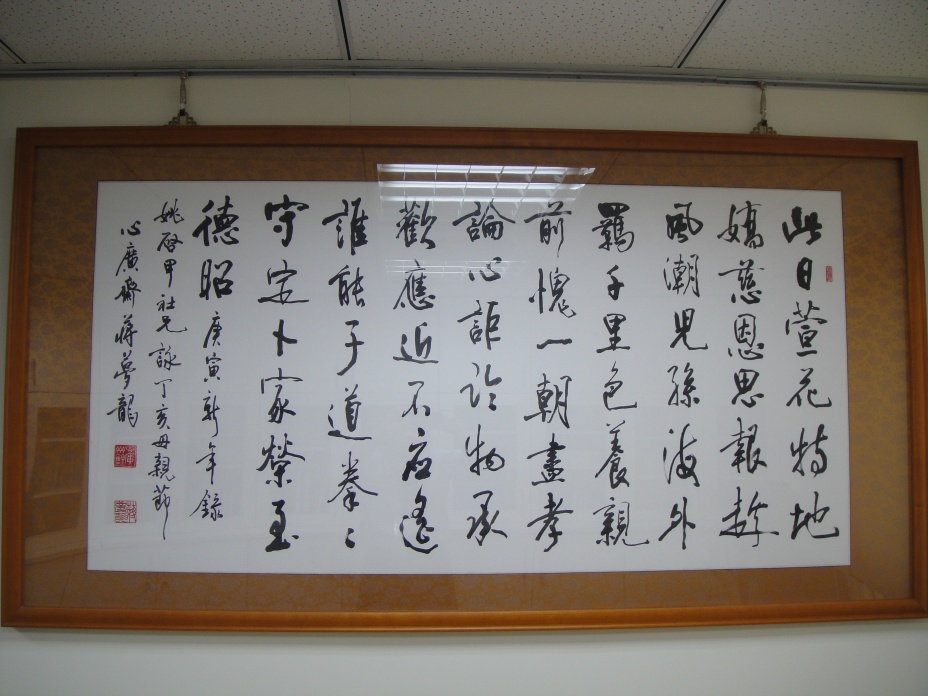 此日萱花特地
嬌慈恩思報趁
風潮兒孫海外
羈千里色養親
前愧一朝盡孝
論心詎論物承
歡應近不应遙
誰能子道拳〻
守定卜家榮至
德昭 庚寅新年錄
姚啓甲社兄詠丁亥母親節
心廣齋蔣夢龍